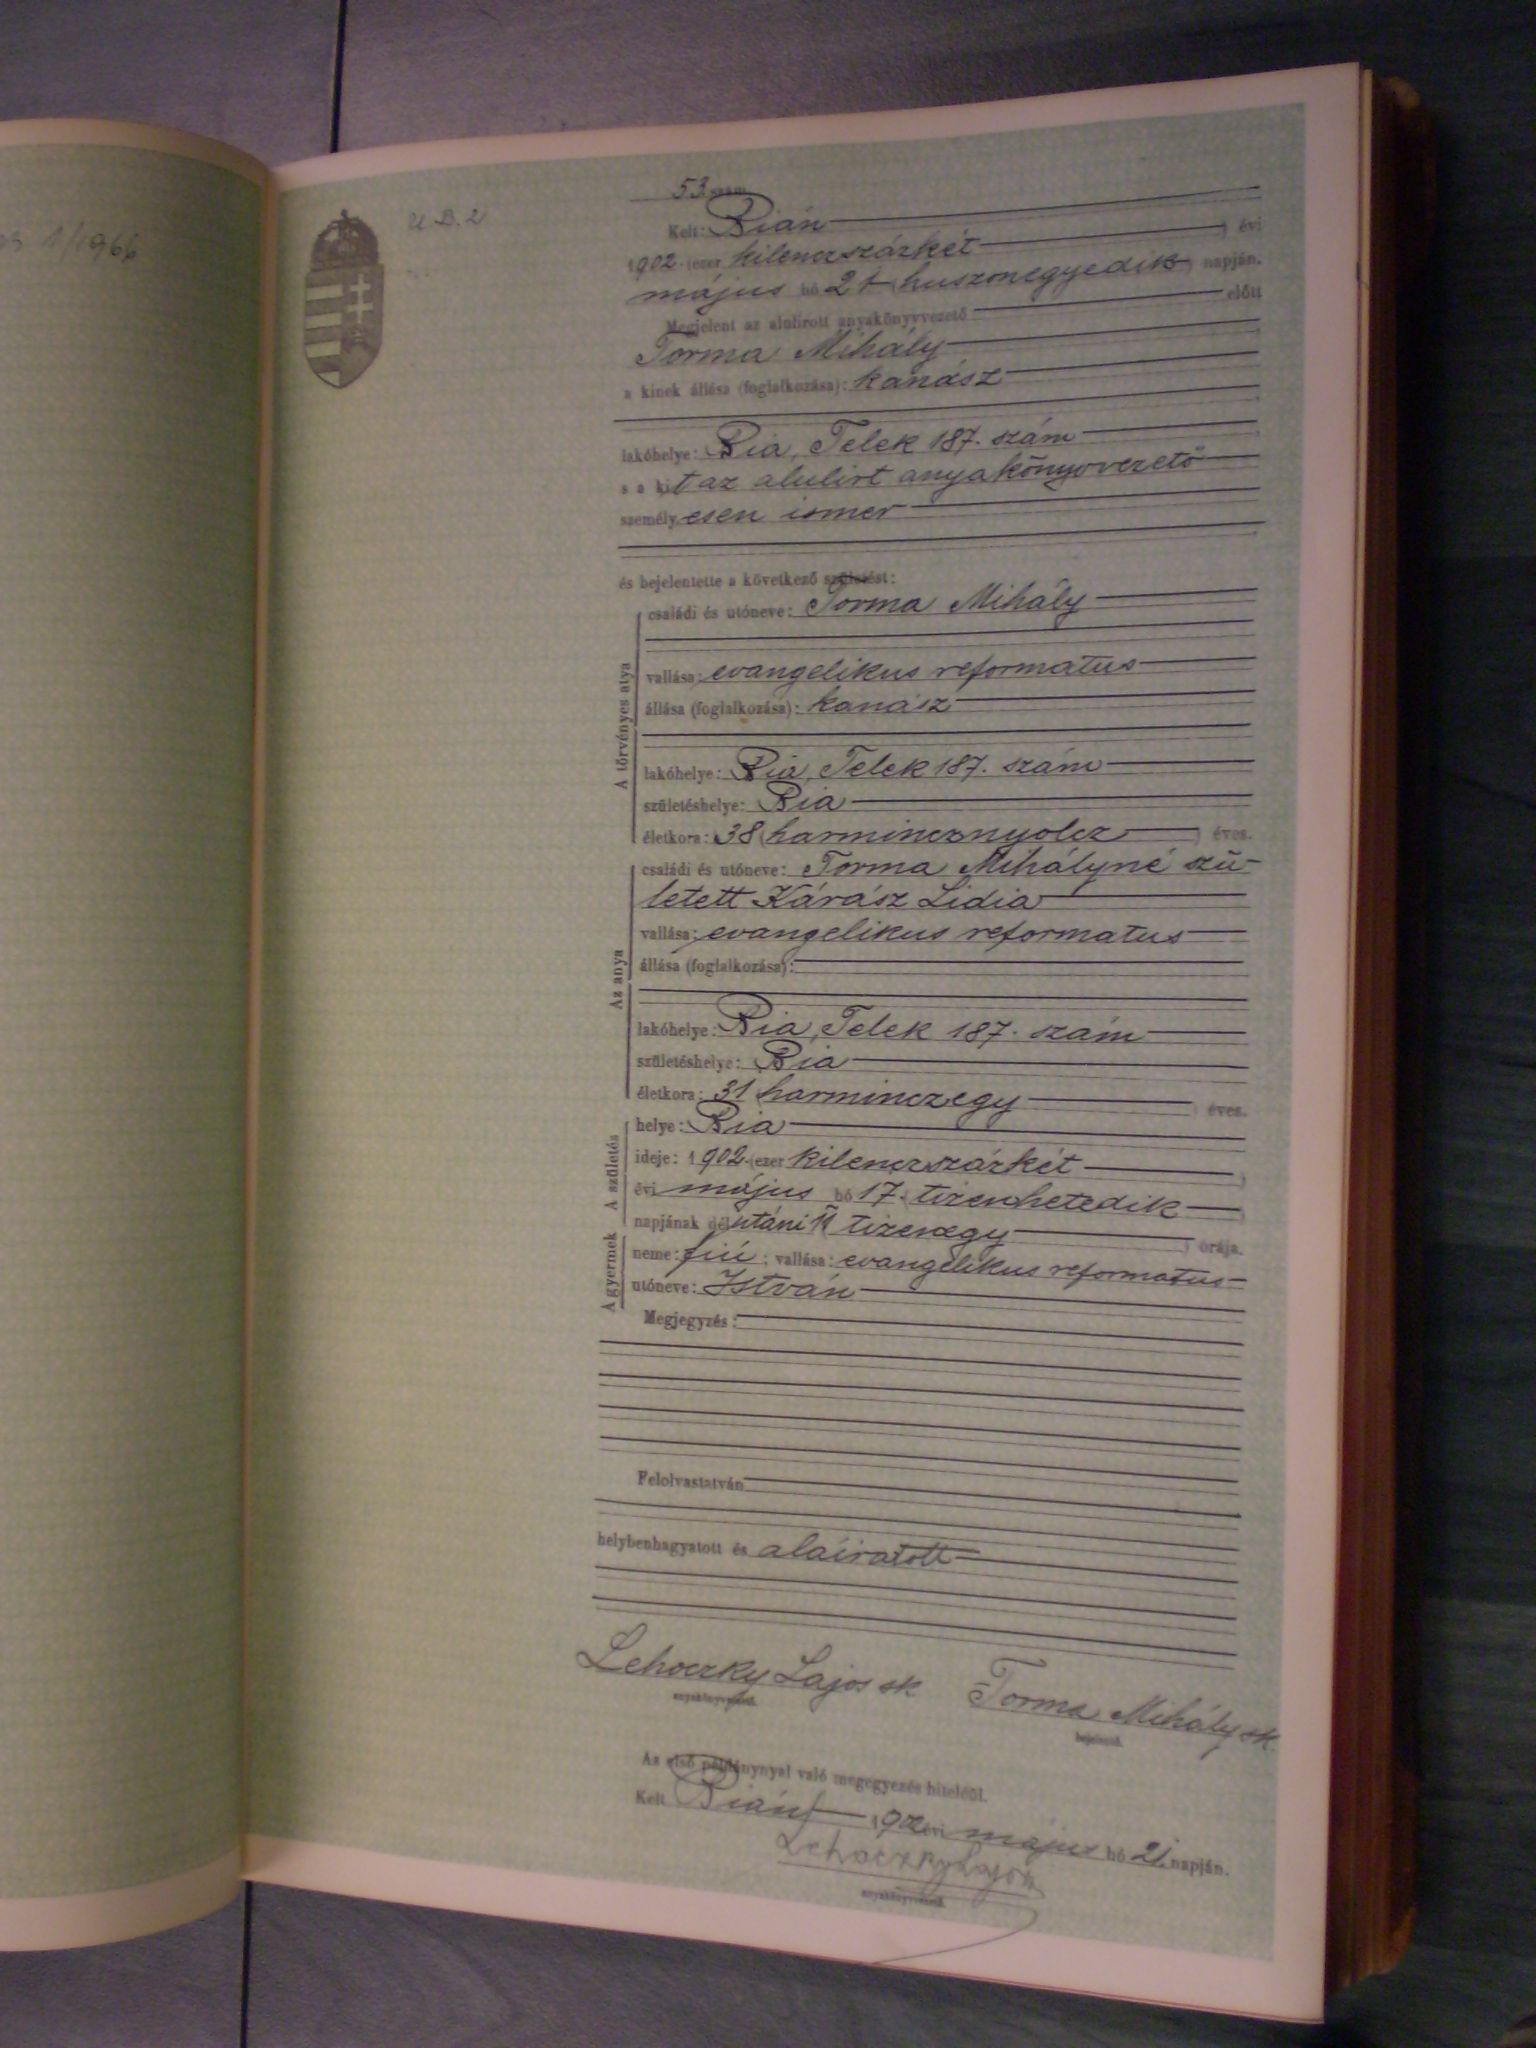 1/1966
U B. 2
53 szám
Kelt: Bián
1902. (ezer kilenczszázkét ) évi
május hó 21 (huszonegyedik) napján.
Megjelent az alulirott anyakönyvvezető előtt
Torma Mihály
a kinek állása (foglalkozása): kanász
lakóhelye: Bia, Telek 187. szám
s a kit az alulirt anyakönyvvezető
személyesen ismer
és bejelentette a következő születést:
A törvényes atya
családi és utóneve: Torma Mihály
vallása: evangelikus reformatus
állása (foglalkozása): kanász
lakóhelye: Bia, Telek 187. szám
születéshelye: Bia
életkora: 38 (harmincznyolcz ) éves.
Az anya
családi és utóneve: Torma Mihályné szü-
letett Kárász Lidia
vallása: evangelikus reformatus
állása (foglalkozása):
lakóhelye: Bia, Telek 187. szám
születéshelye: Bia
életkora: 31 (harminczegy ) éves.
A születés
helye: Bia
ideje: 1902. (ezer kilenczszázkét )
évi május hó 17. (tizenhetedik )
napjának délutáni 11 (tizenegy ) órája.
A gyermek
neme: fiú ; vallása: evangelikus reformatus
utóneve: István
Megjegyzés:
Felolvastatván
helybenhagyatott és aláiratott
Lehoczky Lajos sk Torma Mihály sk.
anyakönyvvezető. bejelentő.
Az első példánynyal való megegyezés hiteléül.
Kelt Bián, 1902 évi május hó 21. napján.
Lehoczky Lajos
anyakönyvvezető.